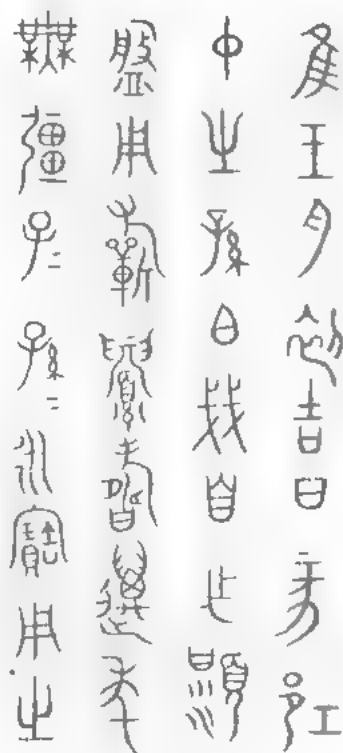 隹王月初吉丁亥邛
中之孫白戔自乍頮
盤用𣄨眉壽萬年
無疆子=孫=永寶用之